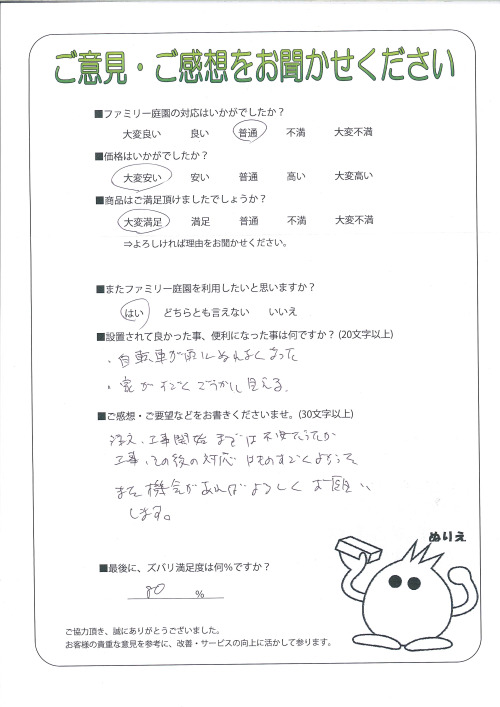 ご意見・ご感想をお聞かせください
■ファミリー庭園の対応はいかがでしたか？
大変良い 良い 普通 不満 大変不満
■価格はいかがでしたか？
大変安い 安い 普通 高い 大変高い
■商品はご満足頂けましたでしょうか？
大変満足 満足 普通 不満 大変不満
⇒よろしければ理由をお聞かせください。
■またファミリー庭園を利用したいと思いますか？
はい どちらとも言えない いいえ
■設置されて良かった事、便利になった事は何ですか？(20文字以上)
・自転車が雨にぬれなくなった
・家がすごくごうかに見える
■ご感想・ご要望などをお書きくださいませ。(30文字以上)
注文、工事開始までは不安でしたが
工事、その後の対応はものすごくよかって
また機会があればよろしくお願い
します。
ぬりえ
■最後に、ズバリ満足度は何％ですか？
80 %
ご協力頂き、誠にありがとうございました。
お客様の貴重な意見を参考に、改善・サービスの向上に活かして参ります。